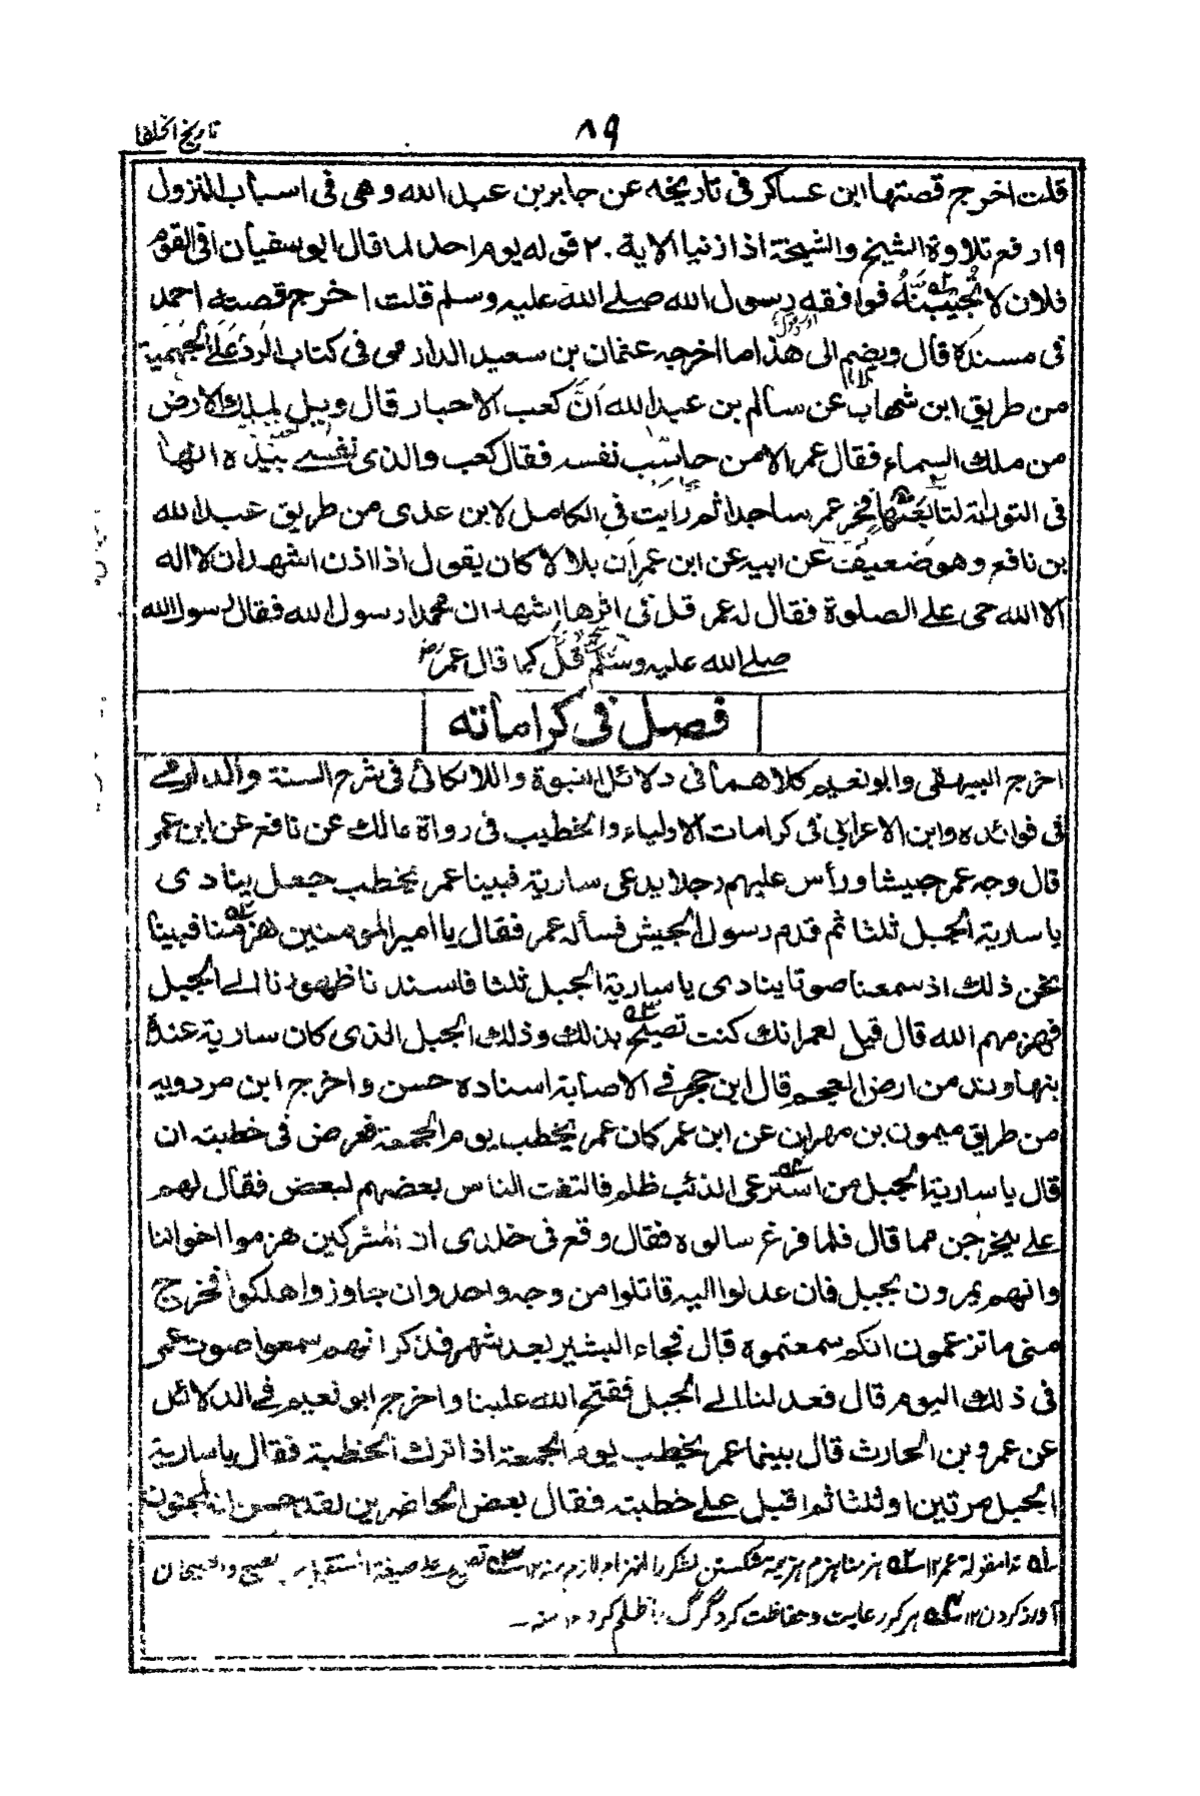 تاريخ الخلفا
٨٩
قلت اخرج قصتها ابن عساكر فى تاريخه عن جابر بن عبد الله وهى فى اسباب النزول
١٩ رفع تلاوة الشيخ والشيخة اذا زنيا الاية ٢٠ قوله يوم احد لما قال ابو سفيان افى القوم
فلان لا نُجيبَنّه فوافقه رسول الله صلے الله عليه وسلم قلت اخرج قصته احمد
فى مسنده قال ويضم الى هذا ما اخرجه عثمان بن سعيد الدارمى فى كتاب الرد عَلَى الجَهْمَية
من طريق ابن شهاب عن سالم بن عبد الله اَنَّ كعب الاحبار قال ويل لملك الارض
من ملك السماء فقال عمر الا من حاسَب نفسه فقال كعب والذى نفسے بيَده انها
فى التوراة لتابعَتُها فخر عمر ساجدا ثم رأيت فى الكامل لابن عدى من طريق عبد الله
بن نافع وهو ضعيف عن ابيه عن ابن عمر اَن بلالا كان يقول اذا اذن اشهد ان لا اله
الا الله حى على الصلوة فقال له عمر قل فى اثرها اشهد ان محمدا رسول الله فقال رسول الله
صلے الله عليه وسَلَّم قُلْ كما قال عمر رض
فصل فى كراماته
اخرج البيهقى وابو نعيم كلاهما فى دلائل النبوة واللالكائى فى شرح السنة والدارمے
فى فوائده وابن الاعرابى فى كرامات الاولياء والخطيب فى رواة مالك عن نافع عن ابن عمر
قال وجه عمر جيشا ورأس عليهم رجلا يدعى سارية فبينا عمر يخطب جعل ينادى
يا سارية الجبل ثلثا ثم قدم رسول الجيش فسأله عمر فقال يا امير المومنين هزمنا فبينا
نحن ذلك اذ سمعنا صوتا ينادى يا سارية الجبل ثلثا فاسندنا ظهورنا الے الجبل
فهزمهم الله قال قيل لعمر انك كنت تصيح بذلك وذلك الجبل الذى كان سارية عنده
بنهاوند من ارض العجم قال ابن حجر فے الاصابة اسناده حسن واخرج ابن مردويه
من طريق ميمون بن مهران عن ابن عمر كان عمر يخطب يوم الجمعة فعرض فى خطبته ان
قال يا سارية الجبل من استرعى الذئب ظلم فالتفت الناس بعضهم لبعض فقال لهم
على ليخرجن مما قال فلما فرغ سالوه فقال وقع فى خلدى ان المشركين هزموا اخواننا
وانهم يمرون بجبل فان عدلوا اليه قاتلوا من وجه واحد وان جاوزوا هلكوا فخرج
منى ما تزعمون انكم سمعتموه قال فجاء البشير بعد شهر فذكر انهم سمعوا صوت عمر
فى ذلك اليوم قال فعدلنا الے الجبل ففتح الله علينا واخرج ابو نعيم فے الدلائل
عن عمرو بن الحارث قال بينما عمر يخطب يوم الجمعة اذ ترك الخطبة فقال يا سارية
الجبل مرتين او ثلثا ثم اقبل علے خطبته فقال بعض الحاضرين لقد جن انه لمجنون
مقولة عمر ١٢ هزمنا هزم هزيمة شكستن لشكر را لازم منه ١٢ على صيغة
آواز كردن ١٢ هر كه رعايت و حفاظت كرد گرگ را ظلم كرد ١٢ منه